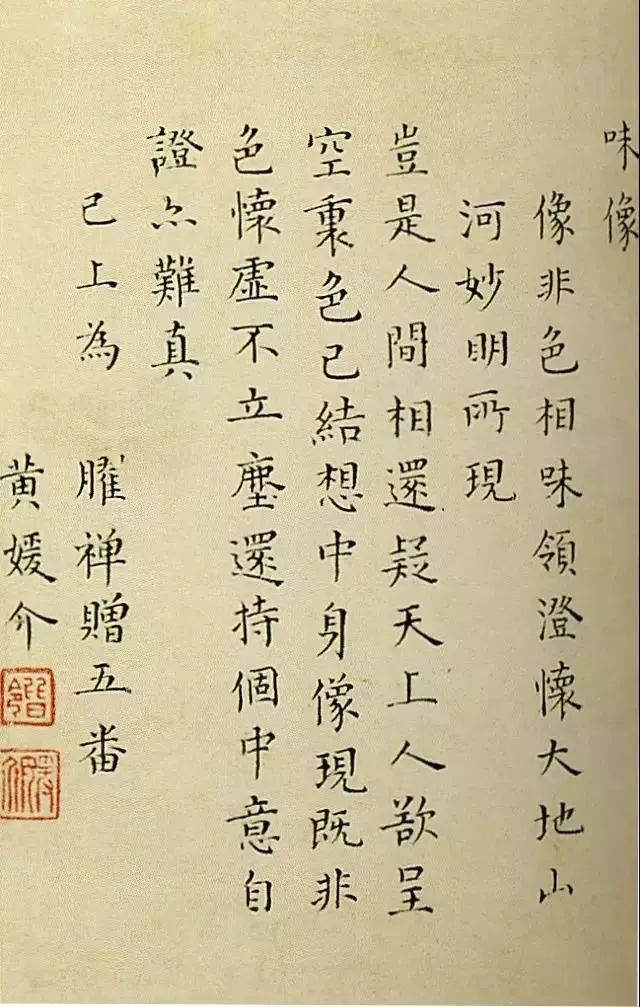 味像
像非色相味領澄懷大地山
河妙明所現
豈是人間相還疑天上人欲呈
空裏色已結想中身像現既非
色懷虛不立塵還持個中意自
證亦難真
已上為 禅贈五番
黄媛介